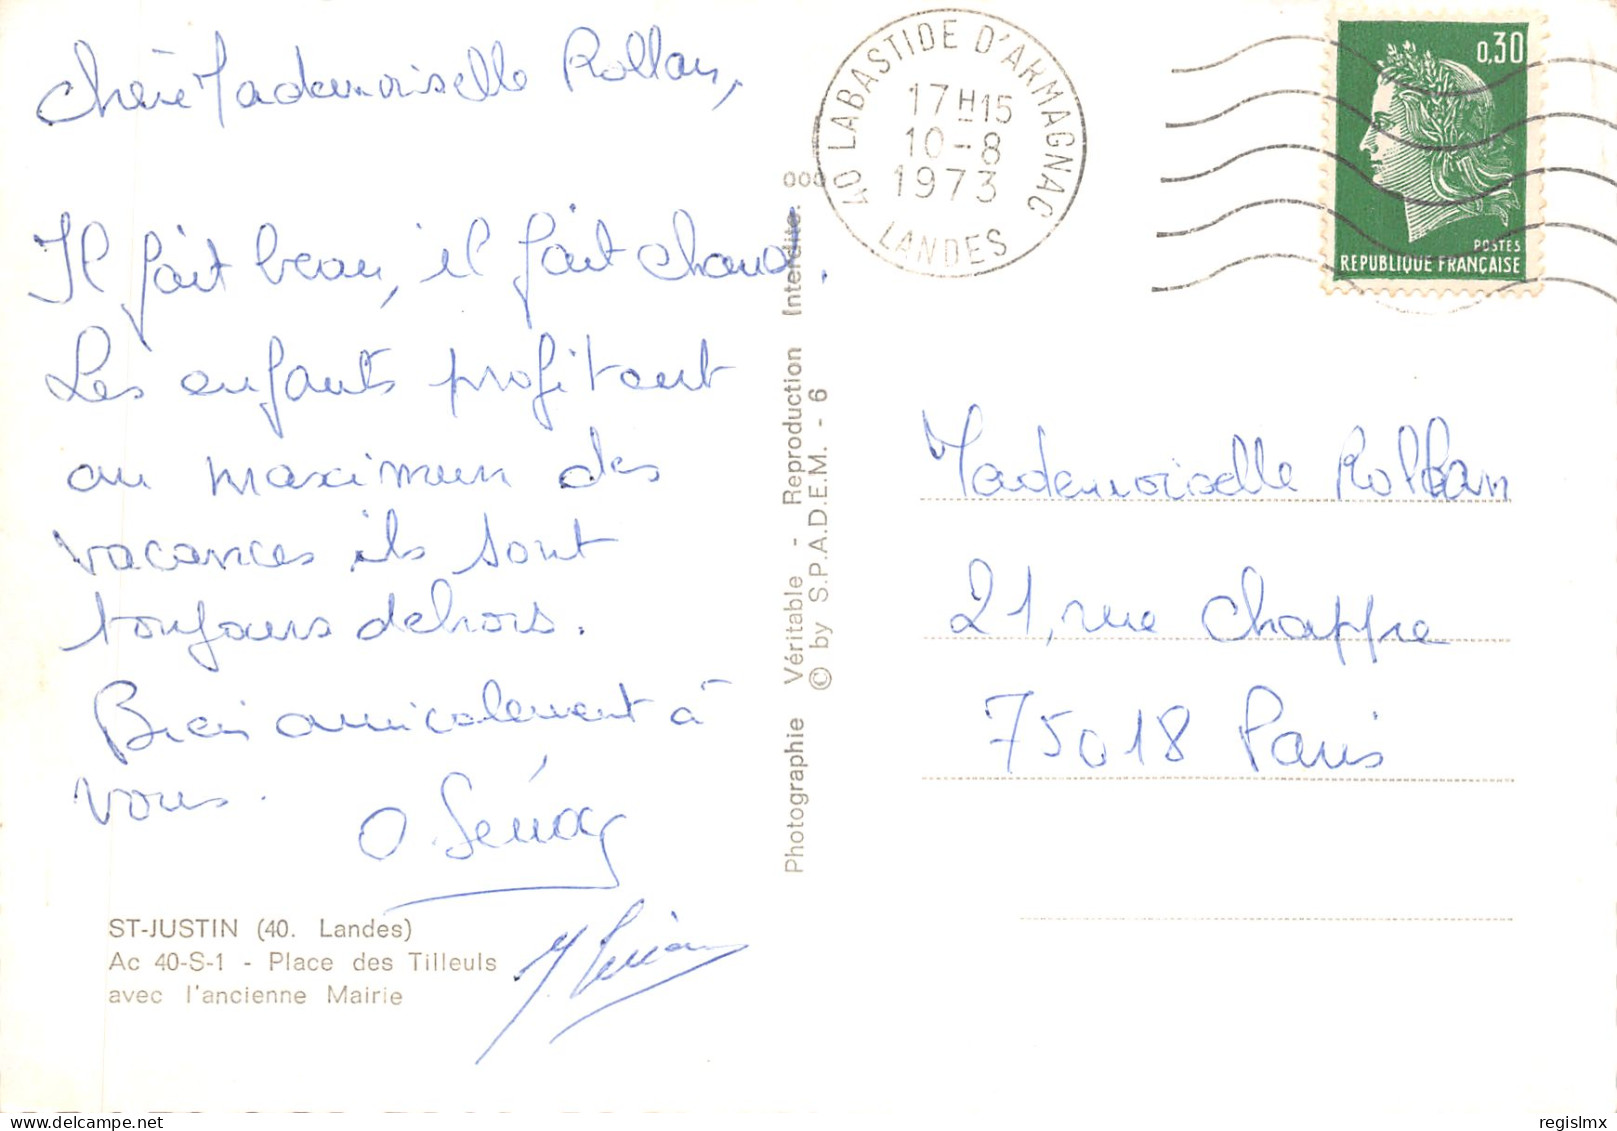 Chère Mademoiselle Rollan,
Il fait beau, il fait chaud.
Les enfants profitent
au maximum des
vacances ils sont
toujours dehors.
Bien amicalement à
vous.
ST-JUSTIN (40. Landes)
Ac 40-S-1 - Place des Tilleuls
avec l'ancienne Mairie
Photographie Véritable - Reproduction Interdite. 000
© by S.P.A.D.E.M. - 6
40 LABASTIDE D'ARMAGNAC
17H15
10-8
1973
LANDES
0,30
POSTES
REPUBLIQUE FRANÇAISE
Mademoiselle Rollan
21, rue Chappe
75018 Paris
regislmx